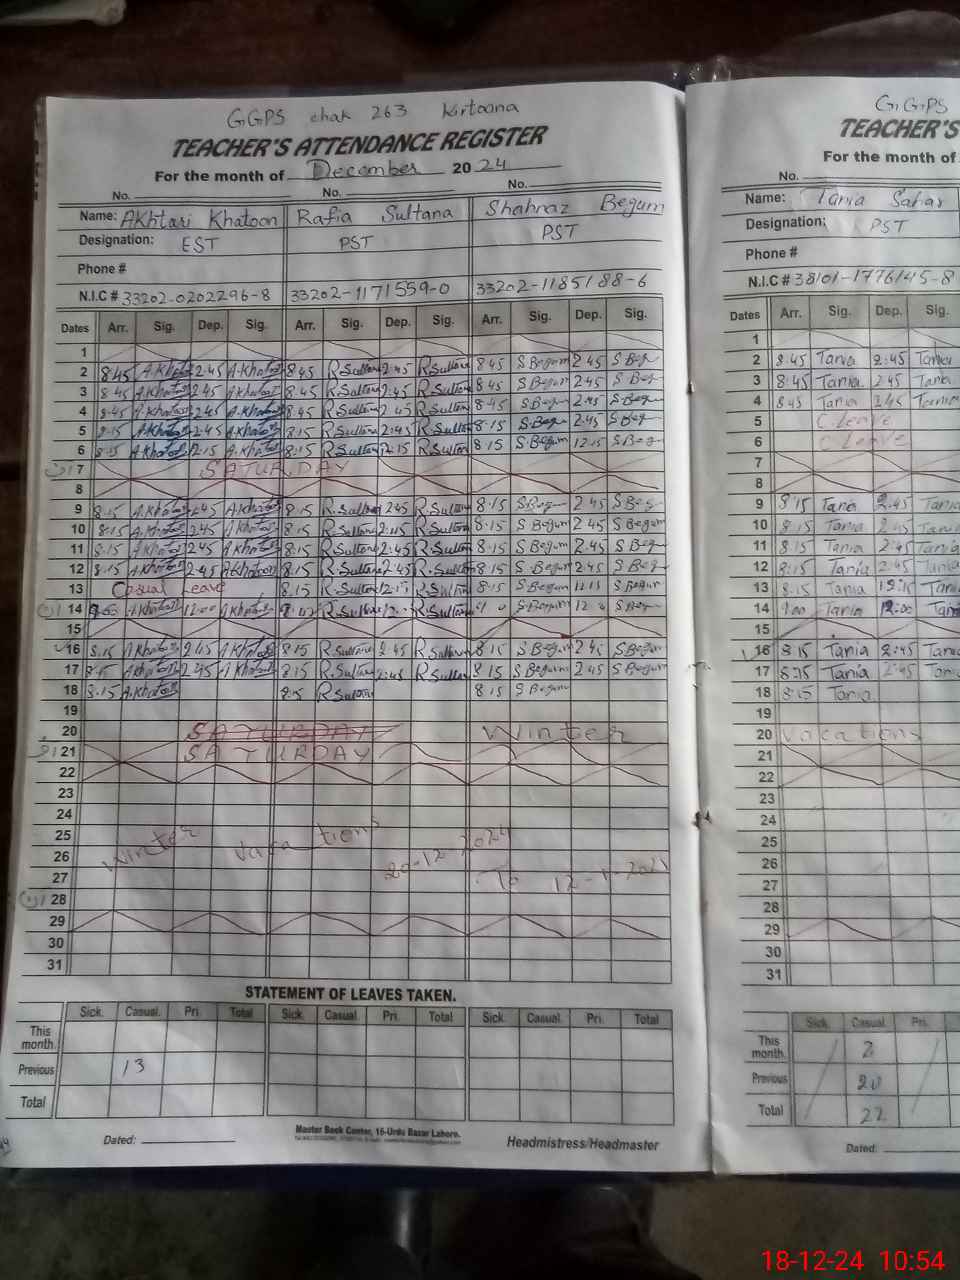 GGPS chak 263 Kirtoana
TEACHER'S ATTENDANCE REGISTER
For the month of December 2024
No. No. No.
Name: AKhtari Khatoon Rafia Sultana Shahnaz Begum
Designation: EST PST PST
Phone #
N.I.C # 33202-0202296-8 33202-1171559-0 33202-1185188-6
Dates Arr. Sig. Dep. Sig. Arr. Sig. Dep. Sig. Arr. Sig. Dep. Sig.
1
2 8:45 A.Khatoon 2:45 A.Khatoon 8:45 R.Sultana 2:45 R.Sultana 8 45 S Begum 2 45 S Beg
3 8:45 A.Khatoon 2:45 A.Khatoon 8:45 R.Sultana 2:45 R.Sultana 8 45 S Begum 2 45 S Beg
4 8:45 A.Khatoon 2:45 A.Khatoon 8:45 R.Sultana 2:45 R.Sultana 8 45 S Begum 2 45 S Beg
5 8:15 A.Khatoon 2:45 A.Khatoon 8:15 R.Sultana 2:45 R.Sultana 8 15 S.Begum 2 45 S.Beg
6 8:15 A.Khatoon 12:15 A.Khatoon 8:15 R.Sultana 12:15 R.Sultana 8 15 S.Begum 12 15 S.Beg
7 SATURDAY
8
9 8:15 A.Khatoon 2:45 A.Khatoon 8:15 R.Sultana 2:45 R.Sultana 8 15 S Begum 2 45 S Beg
10 8:15 A.Khatoon 2:45 A.Khatoon 8:15 R.Sultana 2:45 R.Sultana 8 15 S Begum 2 45 S Beg
11 8:15 A.Khatoon 2:45 A.Khatoon 8:15 R.Sultana 2:45 R.Sultana 8 15 S Begum 2 45 S Beg
12 8:15 A.Khatoon 2:45 A.Khatoon 8:15 R.Sultana 2:45 R.Sultana 8 15 S Begum 2 45 S Beg
13 Casual Leave 8:15 R.Sultana 12:15 R.Sultana 8 15 S Begum 12 15 S Begum
14 A.Khatoon 12:00 A.Khatoon R.Sultana R.Sultana S Begum S Beg
15
16 8:15 A.Khatoon 2:45 A.Khatoon 8:15 R.Sultana 2:45 R.Sultana 8 15 S Begum 2 45 S Begum
17 8:15 A.Khatoon 2:45 A.Khatoon 8:15 R.Sultana 2:45 R.Sultana 8 15 S Begum 2 45 S Begum
18 8:15 A.Khatoon 8:15 R.Sultana 8 15 S Begum
19
20 SATURDAY Winter
21 SATURDAY
22
23
24
25 Winter Vacations 20-12-2024
26
27 To
28
29
30
31
STATEMENT OF LEAVES TAKEN.
Sick. Casual. Pri. Total Sick. Casual. Pri. Total Sick. Casual. Pri. Total
This month.
Previous 13
Total
Dated:
Master Book Center, 16-Urdu Bazar Lahore.
Headmistress/Headmaster
G.GPS
TEACHER'S
For the month of
No.
Name: Tania Sahar
Designation: PST
Phone #
N.I.C # 38101-1776145-8
Dates Arr. Sig. Dep. Sig.
1
2 8:45 Tania 2:45 Tania
3 8:45 Tania 2:45 Tania
4 8:45 Tania 2:45 Tania
5 C.Leave
6 C.Leave
7
8
9 8:15 Tania 2:45 Tania
10 8:15 Tania 2:45 Tania
11 8:15 Tania 2:45 Tania
12 8:15 Tania 2:45 Tania
13 8:15 Tania 12:15 Tan
14 9:00 Tania 12:00 Tan
15
16 8:15 Tania 2:45 Tania
17 8:15 Tania 2:45 Tan
18 8:15 Tania
19
20 Vacations
21
22
23
24
25
26
27
28
29
30
31
Sick. Casual. Pri.
This month. 2
Previous 20
Total 22
Dated:
18-12-24 10:54